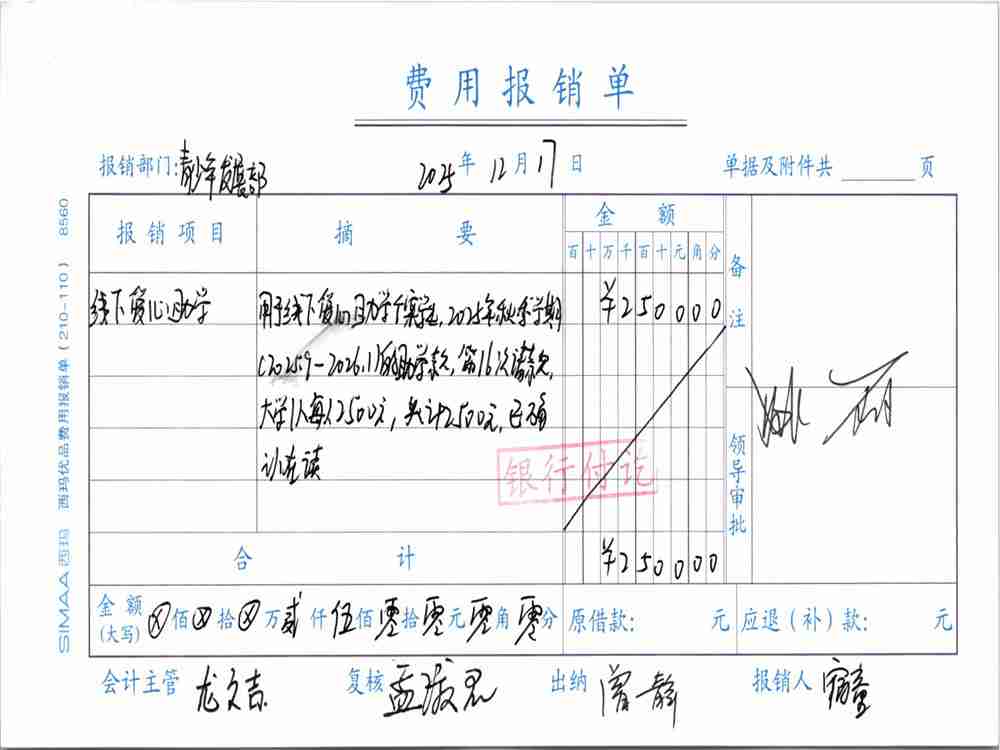 费用报销单
报销部门:青少年发展部 2025年12月17日 单据及附件共 页
报销项目 摘要 金额 备注
百十万千百十元角分
线下爱心助学 用于线下爱心助学个案学生,2025年秋季学期 ¥250000
(2025.9-2026.1)的助学款,第16次请款,
大学1人每人2500元,共计2500元,已确
认在读
银行付讫
领导审批
合计 ¥250000
金额(大写) ⊗佰⊗拾⊗万贰仟伍佰零拾零元零角零分 原借款: 元 应退(补)款: 元
会计主管 龙文吉 复核 孟 出纳 曾静 报销人
SIMAA 西玛 西玛优品费用报销单(210-110) 8560